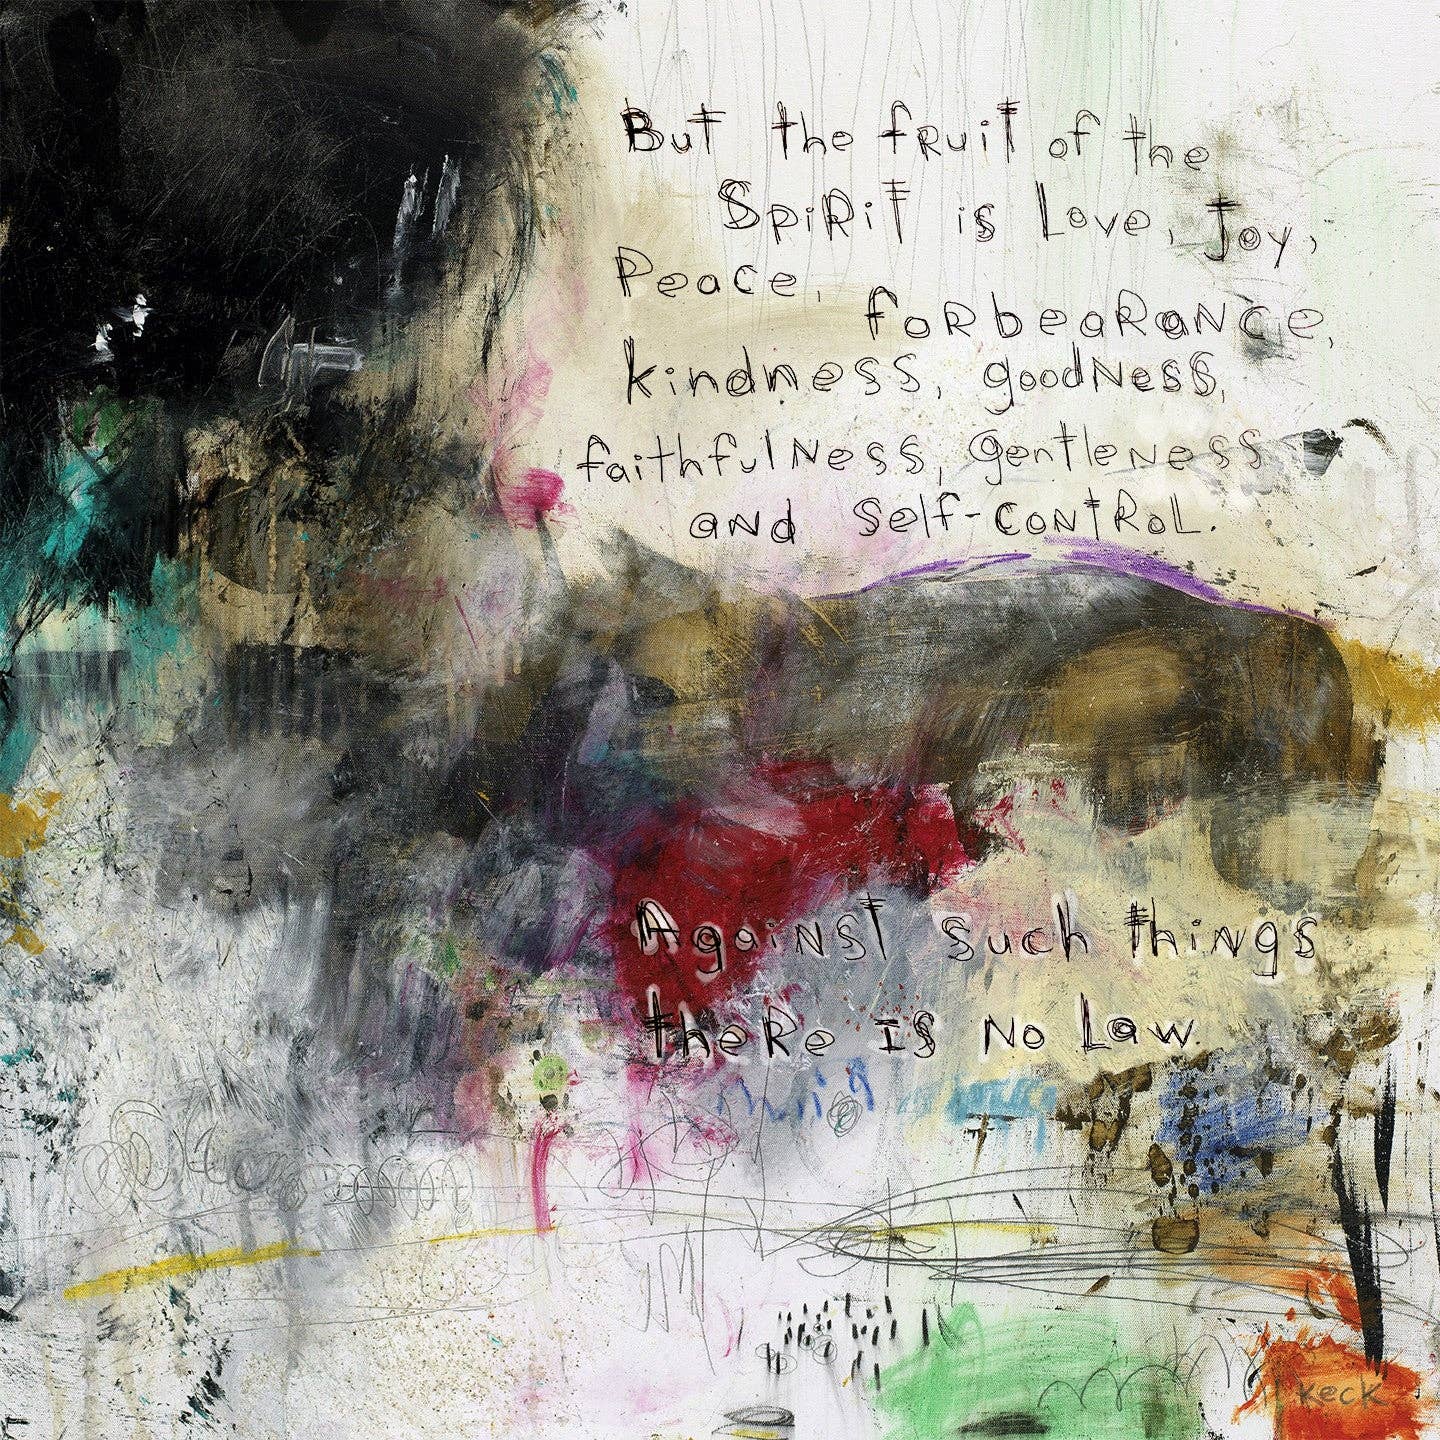 But the fRuiT of the
SpiRiT is Love, Joy,
Peace,
foRbeaRaNce,
kindness, goodNess,
faithfulNess, gentleNess
aNd self-coNtRoL.
AgaiNsT such things
theRe IS No Law.
Keck